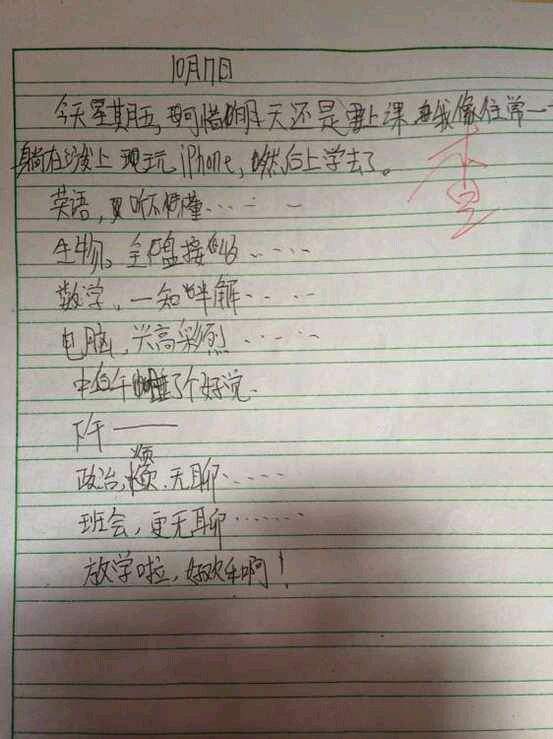 10月17日
今天星期五,可惜明天还是要上课 我像往常一
躺在沙发上 玩iPhone,然后上学去了。
英语,又听不懂……
生物,全盘接收……
数学,一知半解……
电脑,兴高采烈……
中午睡了个好觉.
下午——
政治,烦.无聊……
班会,更无聊……
放学啦,好欢乐啊!